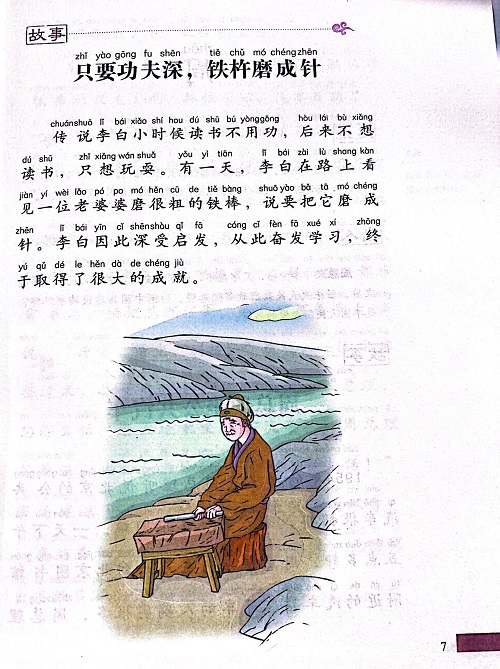 故事
zhǐ yào gōng fu shēn tiě chǔ mó chéng zhēn
只要功夫深，铁杵磨成针
chuánshuō lǐ bái xiǎo shí hou dú shū bú yònggōng hòu lái bù xiǎng
传说李白小时候读书不用功，后来不想
dú shū zhǐ xiǎng wán shuǎ yǒu yì tiān lǐ bái zài lù shang kàn
读书，只想玩耍。有一天，李白在路上看
jiàn yí wèi lǎo pó po mó hěn cū de tiě bàng shuō yào bǎ tā mó chéng
见一位老婆婆磨很粗的铁棒，说要把它磨成
zhēn lǐ bái yīn cǐ shēnshòu qǐ fā cóng cǐ fèn fā xué xí zhōng
针。李白因此深受启发，从此奋发学习，终
yú qǔ dé le hěn dà de chéng jiù
于取得了很大的成就。
7